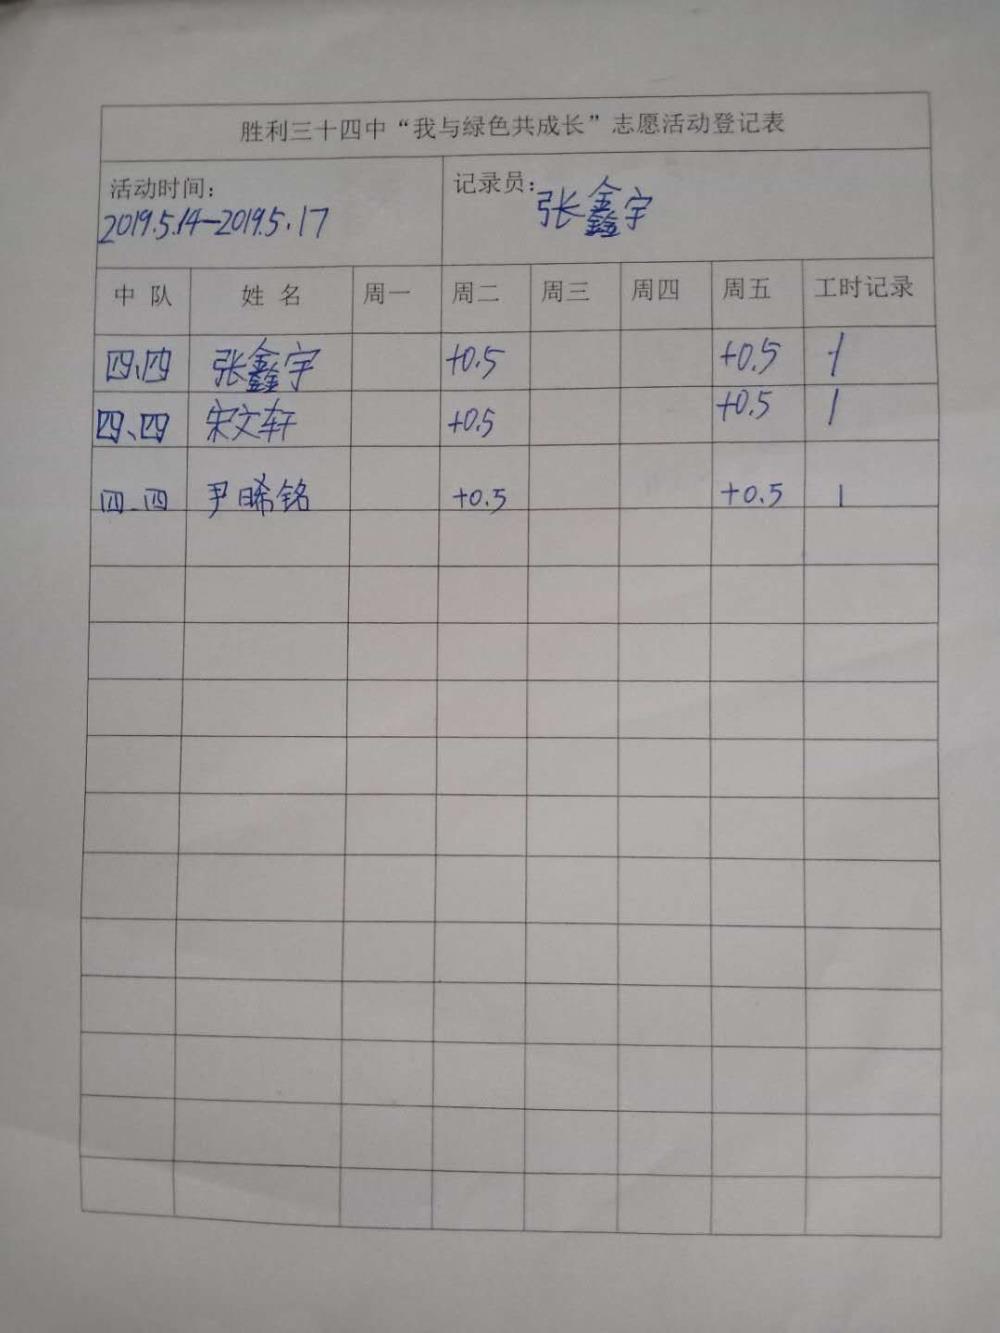 胜利三十四中“我与绿色共成长”志愿活动登记表
活动时间： 记录员：张鑫宇
2019.5.14—2019.5.17
中 队 姓 名 周一 周二 周三 周四 周五 工时记录
四、四 张鑫宇 +0.5 +0.5 1
四、四 宋文轩 +0.5 +0.5 1
四.四 尹晞铭 +0.5 +0.5 1